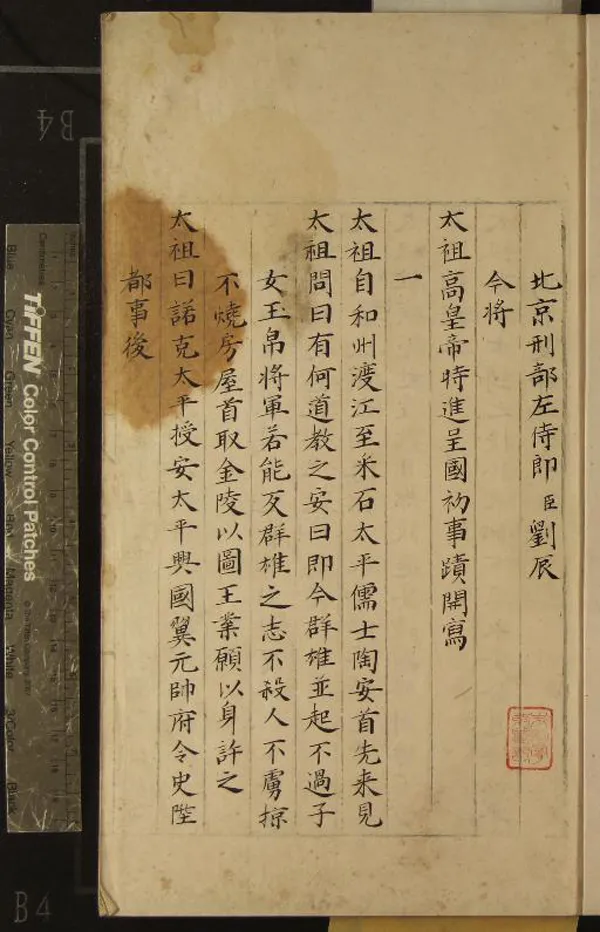 北京刑部左侍郎臣劉辰
今將
太祖高皇帝時進呈國初事蹟開寫
一
太祖自和州渡江至采石太平儒士陶安首先来見
太祖問曰有何道教之安曰即今群雄並起不過子
女玉帛將軍若能反群雄之志不殺人不虜掠
不燒房屋首取金陵以圖王業願以身許之
太祖曰諾克太平授安太平興國翼元帥府令史陞
都事後
B4
TIFFEN Color Control Patches
B4